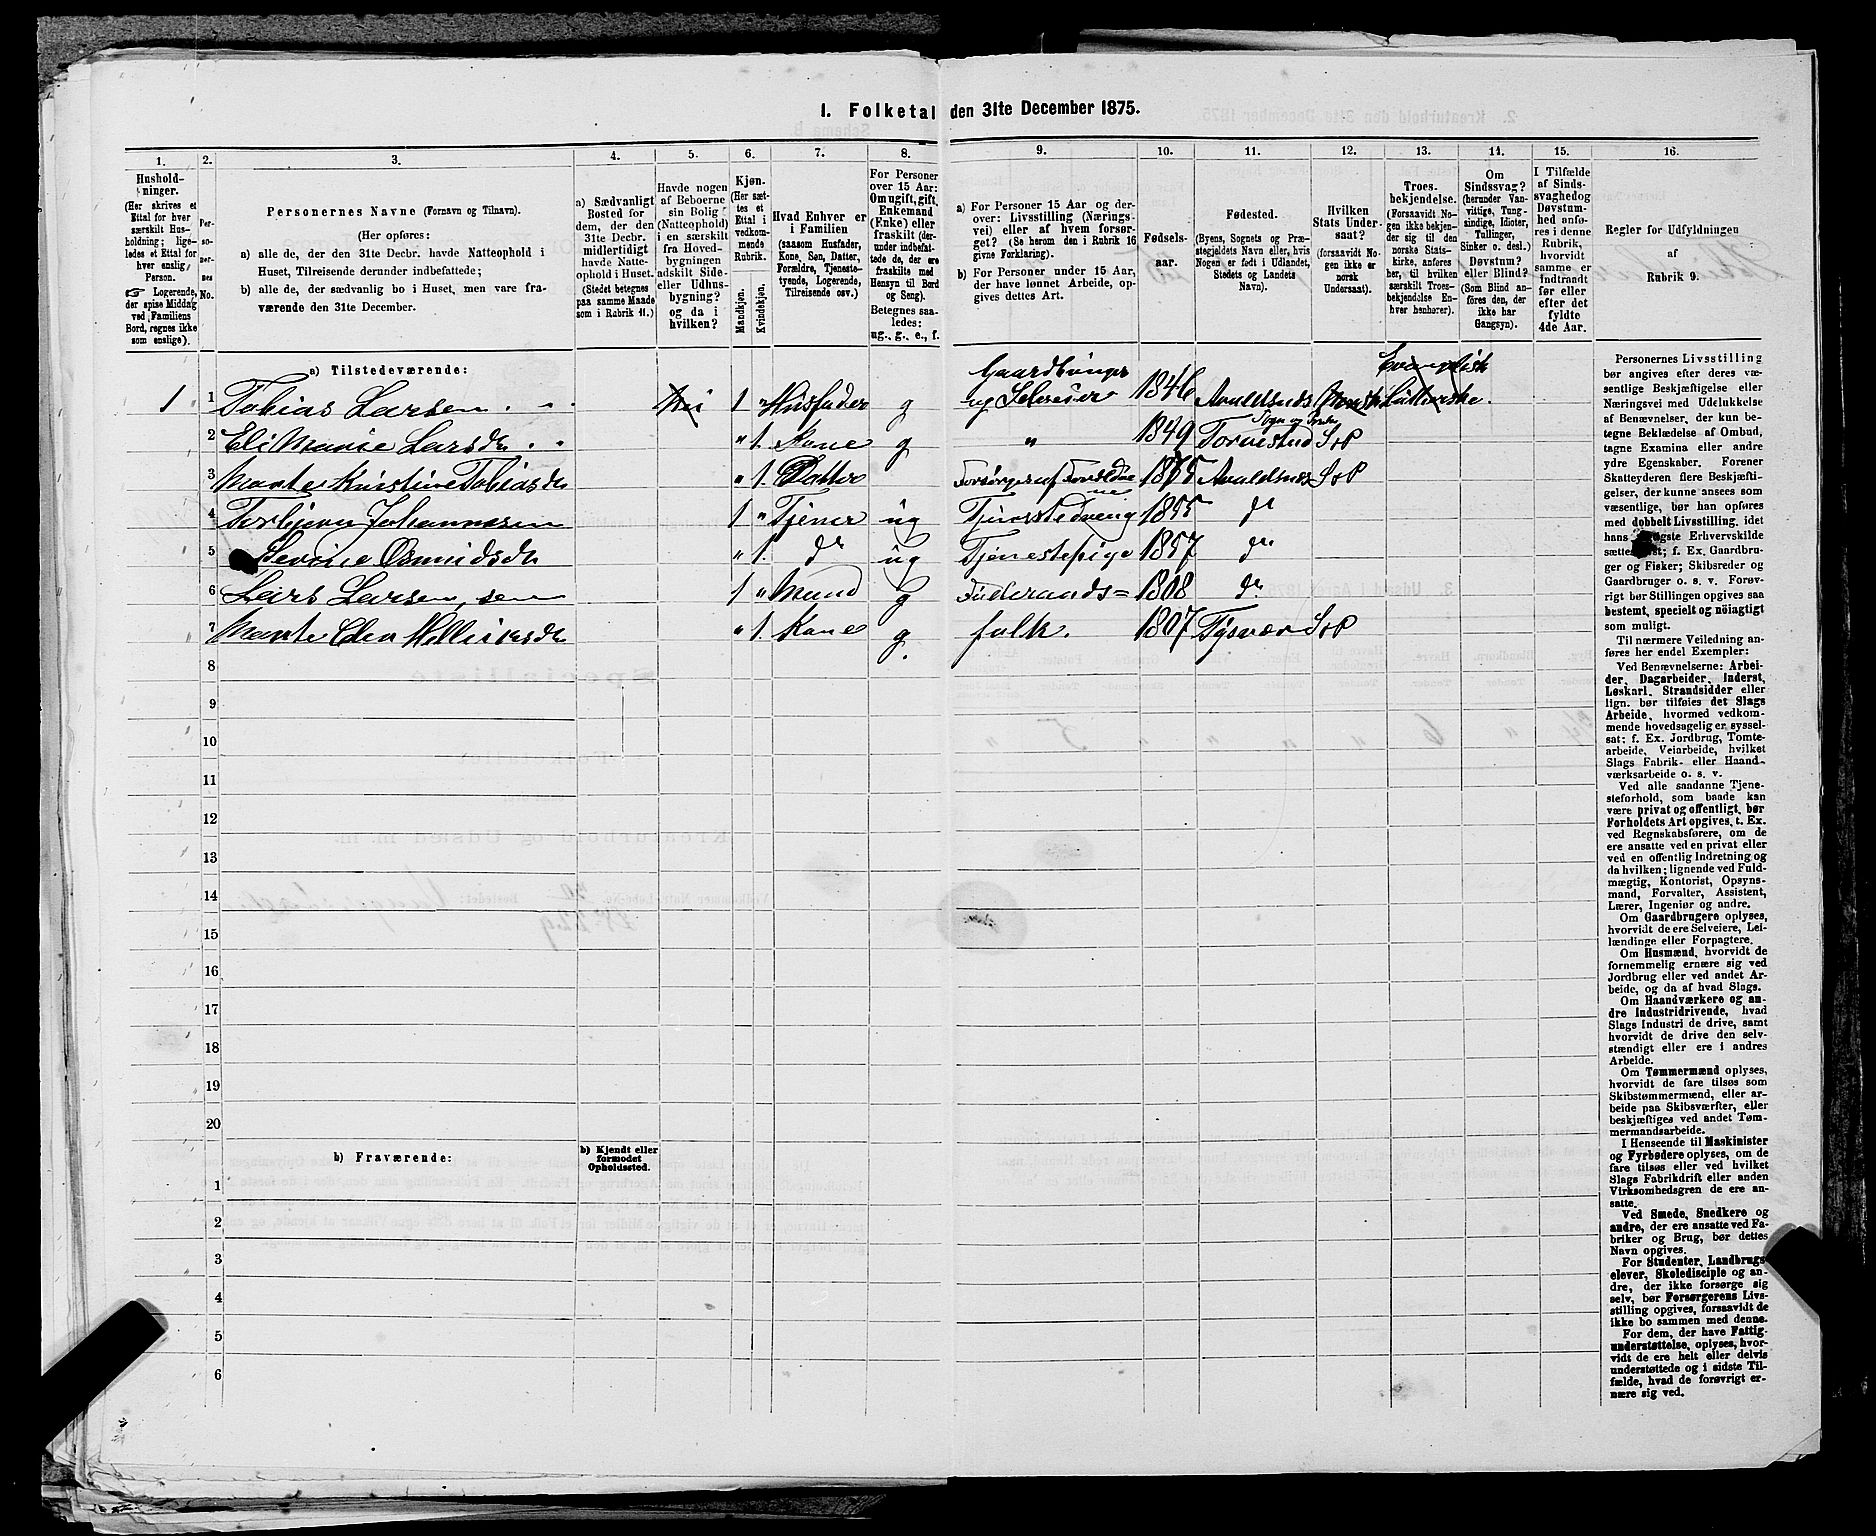 1. Folketal den 31te December 1875.
1. 2. 3. 4. 5. 6. 7. 8. 9. 10. 11. 12. 13. 14. 15. 16.
Hushold-
ninger.
(Her skrives et
Ettal for hver
særskilt Hus-
holdning; lige-
ledes et Ettal for
hver enslig
Person.
☞ Logerende,
der spise Middag
ved Familiens
Bord, regnes ikke
som enslige).
Per-
so-
ner-
nes
No.
Personernes Navne (Fornavn og Tilnavn).
(Her opføres:
a) alle de, der den 31te Decbr. havde Natteophold i
Huset, Tilreisende derunder indbefattede;
b) alle de, der sædvanlig bo i Huset, men vare fra-
værende den 31te December.
a) Sædvanligt
Bosted for
dem, der den
31te Decbr.
midlertidigt
havde Natte-
ophold i Huset.
(Stedet betegnes
paa samme Maade
som i Rubrik 11.)
Havde nogen
af Beboerne
sin Bolig
(Natteophold)
i en særskilt
fra Hoved-
bygningen
adskilt Side-
eller Udhus-
bygning?
og da i
hvilken?
Kjøn.
(Her sæt-
tes et
Ettal i
vedkom-
mende
Rubrik.
Mandkjøn.
Kvindekjøn.
Hvad Enhver er
i Familien
(saasom Husfader,
Kone, Søn, Datter,
Forældre, Tjeneste-
tyende, Logerende,
Tilreisende osv.)
For Personer
over 15 Aar:
Om ugift, gift,
Enkemand
(Enke) eller
fraskilt (der-
under indbefat-
tede de, der ere
fraskilte med
Hensyn til Bord
og Seng).
Betegnes saa-
ledes:
ug., g., e., f.
a) For Personer 15 Aar og der-
over: Livsstilling (Nærings-
vei) eller af hvem forsør-
get? (Se herom den i Rubrik 16
givne Forklaring).
b) For Personer under 15 Aar,
der have lønnet Arbeide, op-
gives dettes Art.
Fødsels-
aar.
Fødested.
(Byens, Sognets og Præ-
stegjeldets Navn eller, hvis
Nogen er født i Udlandet,
Stedets og Landets
Navn).
Hvilken
Stats Under-
saat?
(forsaavidt No-
gen ikke er
norsk
Undersaat).
Troes-
bekjendelse.
(Forsaavidt No-
gen ikke bekjen-
der sig til den
norske Stats-
kirke, anføres
her, til hvilken
særskilt Troes-
bekjendelse En-
hver henhører).
Om
Sindssvag?
(herunder Van-
vittige, Tung-
sindige, Idioter,
Tullinger,
Sinker o. desl.)
Døvstum?
eller Blind?
(Som Blind an-
føres den, der
ikke har
Gangsyn).
I Tilfælde
af Sinds-
svaghed og
Døvstum-
hed anfø-
res i denne
Rubrik,
hvorvidt
samme er
indtraadt
før eller
efter det
fyldte
4de Aar.
Regler for Udfyldningen
af
Rubrik 9.
a) Tilstedeværende:
1 1 Tobias Larsen 1 " Husfader g Gaardbruger og Selveier 1846 Avaldsnes Norsk Evangelisk Lutherske.
2 Eli Marie Larsdtr " 1. Kone g " 1849 Torvestad Sogn og S&P
3 Marte Kristine Tobiasdtr " 1. Datter Forsørges af Forældrene 1875 Avaldsnes S&P
4 Torbjørn Johannesen 1 " Tjener ug Tjenestedreng 1855 do
5 Serine Osmundsdtr " 1. do ug Tjenestepige 1857 do
6 Lars Larsen, sen 1 " Mand g Føderaads= 1808 do
7 Marte Elen Helliesdtr " 1. Kone g. folk. 1807 Tysvær S&P
8
9
10
11
12
13
14
15
16
17
18
19
20
b) Fraværende:
b) Kjendt eller
formodet
Opholdssted.
1
2
3
4
5
6
Personernes Livsstilling
bør angives efter deres væ-
sentlige Beskjæftigelse eller
Næringsvei med Udelukkelse
af Benævnelser, der kun be-
tegne Beklædelse af Ombud,
tagne Examina eller andre
ydre Egenskaber. Forener
Skatteyderen flere Beskjæfti-
gelser, der kunne ansees som
væsentlige, bør han opføres
med dobbelt Livsstilling, idet
hans vigtigste Erhvervskilde
sættes først; f. Ex. Gaardbru-
ger og Fisker; Skibsreder og
Gaardbruger o. s. v. Forøv-
rigt bør Stillingen opgives saa
bestemt, specielt og nöiagtigt
som muligt.
Til nærmere Veiledning an-
føres her endel Exempler:
Ved Benævnelserne: Arbei-
der, Dagarbeider, Inderst,
Løskarl, Strandsidder eller
lign. bør tilføies det Slags
Arbeide, hvormed vedkom-
mende hovedsagelig er syssel-
sat; f. Ex. Jordbrug, Tomte-
arbeide, Veiarbeide, hvilket
Slags Fabrik- eller Haand-
værksarbeide o. s. v.
Ved alle saadanne Tjene-
steforhold, som baade kan
være privat og offentligt, bør
Forholdets Art opgives, t. Ex.
ved Regnskabsførere, om de
ere ansatte ved en privat eller
ved en offentlig Indretning og
da hvilken; lignende ved Fuld-
mægtig, Kontorist, Opsyns-
mand, Forvalter, Assistent,
Lærer, Ingeniør og andre.
Om Gaardbrugere oplyses,
hvorvidt de ere Selveiere, Lei-
lændinge eller Forpagtere.
Om Husmænd, hvorvidt de
fornemmelig ernære sig ved
Jordbrug eller ved andet Ar-
beide, og da af hvad Slags.
Om Haandværkere og an-
dre Industridrivende, hvad
Slags Industri de drive, samt
hvorvidt de drive den selv-
stændigt eller ere i andres
Arbeide.
Om Tømmermænd oplyses,
hvorvidt de fare tilsøs som
Skibstømmermænd, eller ar-
beide paa Skibsværfter, eller
beskjæftiges ved andet Tøm-
mermandsarbeide.
I Henseende til Maskinister
og Fyrbødere oplyses, om de
fare tilsøs eller ved hvilket
Slags Fabrikdrift eller anden
Virksomhedsgren de ere an-
satte.
Ved Smede, Snedkere og
andre, der ere ansatte ved Fa-
briker og Brug, bør dettes
Navn opgives.
For Studenter, Landbrugs-
elever, Skoledisciple og an-
dre, der ikke forsørge sig
selv, bør Forsørgerens Livs-
stilling opgives, forsaavidt de
ikke bo sammen med denne.
For dem, der have Fattig-
understøttelse, oplyses, hvor-
vidt de ere helt eller delvis
understøttede og i sidste Til-
fælde, hvad de forøvrigt er-
nære sig ved.